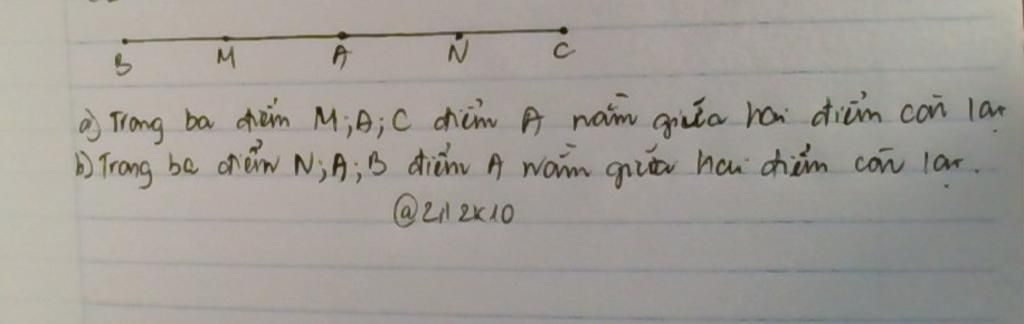 B M A N C
a) Trong ba điểm M;A;C điểm A nằm giữa hai điểm còn lại
b) Trong ba điểm N;A;B điểm A nằm giữa hai điểm còn lại.